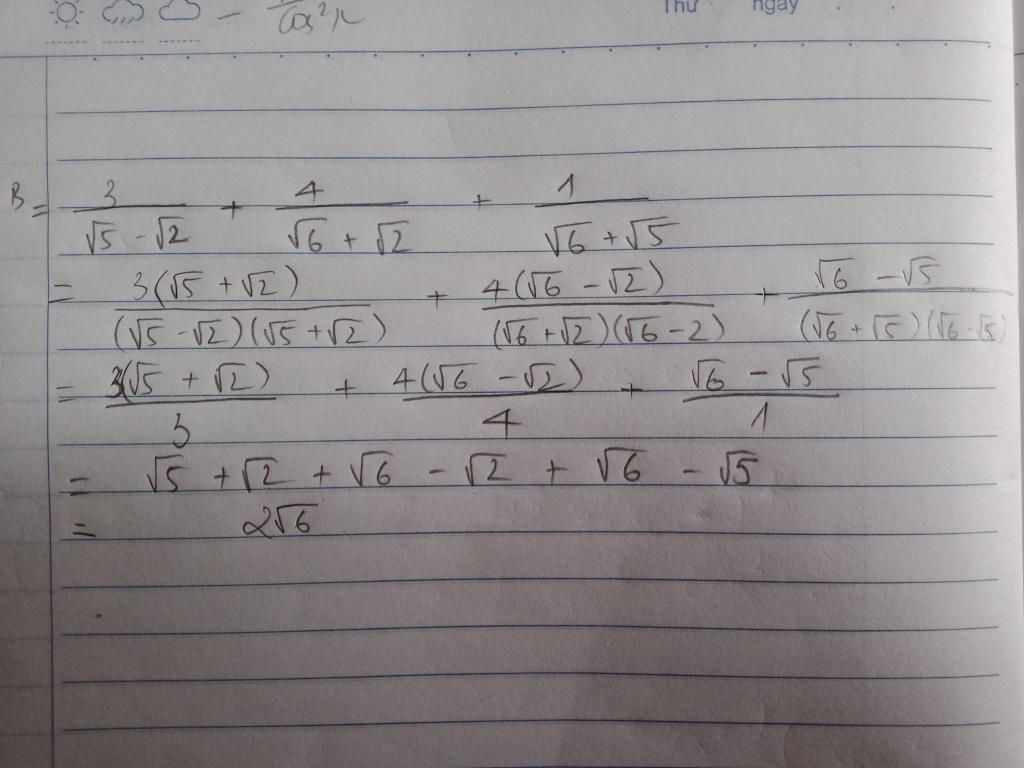 — cos²x Thứ ngày
B = 3/(√5 - √2) + 4/(√6 + √2) + 1/(√6 + √5)
= 3(√5 + √2)/((√5 - √2)(√5 + √2)) + 4(√6 - √2)/((√6 + √2)(√6 - 2)) + (√6 - √5)/((√6 + √5)(√6 - √5))
= 3(√5 + √2)/3 + 4(√6 - √2)/4 + (√6 - √5)/1
= √5 + √2 + √6 - √2 + √6 - √5
= 2√6